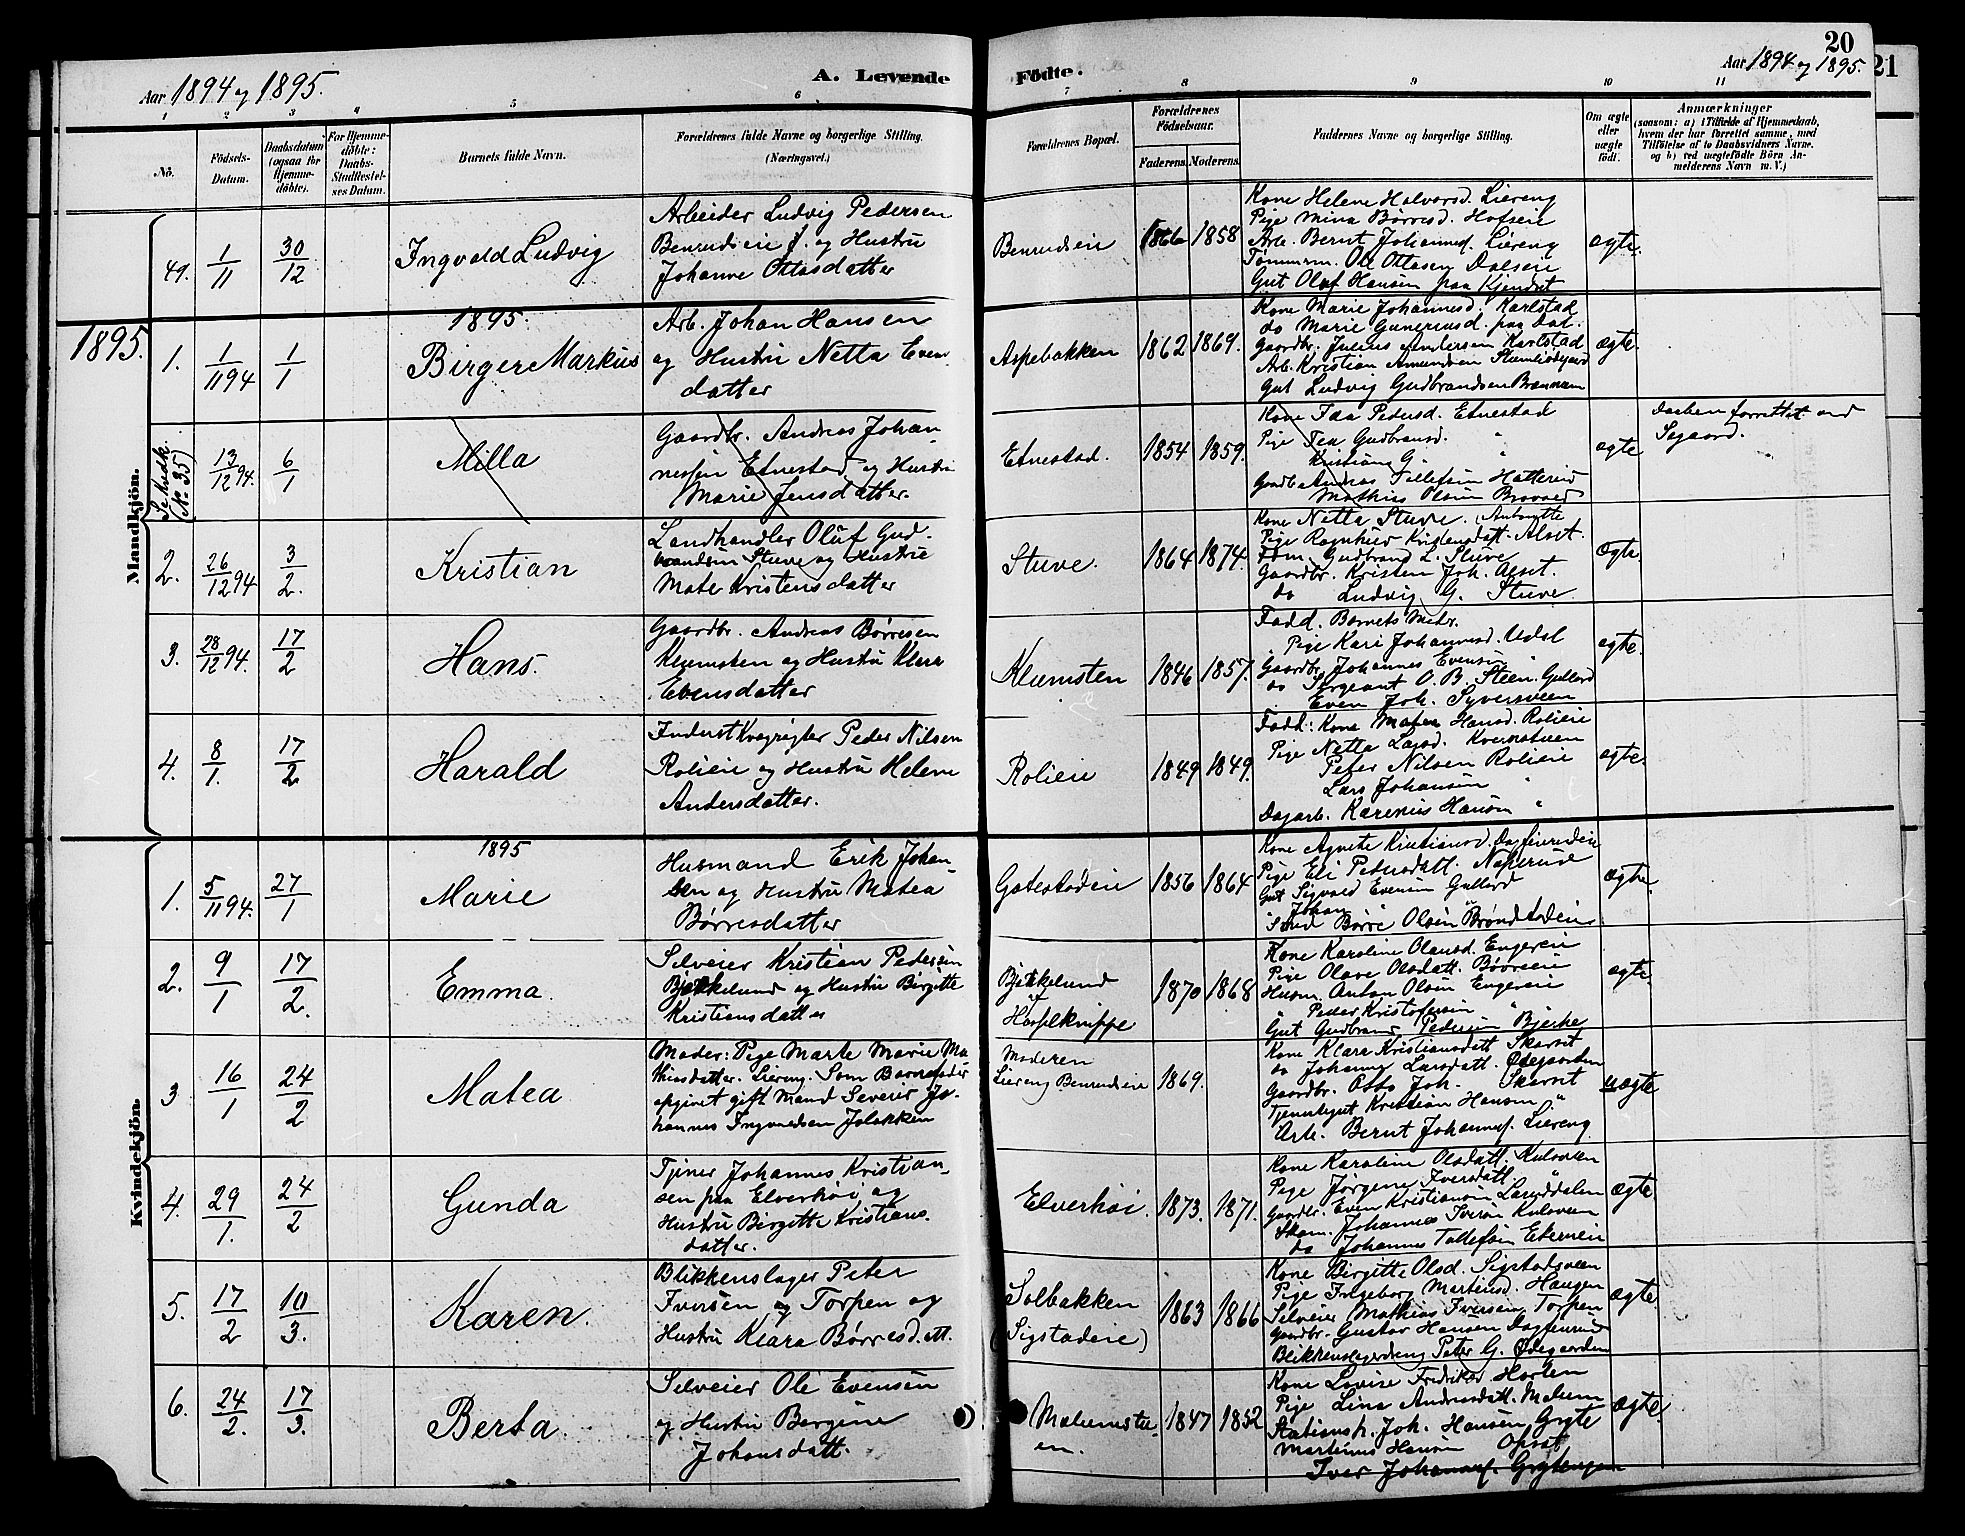 Aar 1894 og 1895.
A. Levende
Födte.
20
Aar 1894 og 1895.
21
1 2 3 4 5 6
7 8 9 10 11
No.
Födsels-Datum.
Daabsdatum (ogsaa for Hjemmedöbte).
For Hjemmedöbte: Daabs-Stadfæstelses Datum.
Barnets fulde Navn.
Forældrenes fulde Navne og borgerlige Stilling.
(Næringsvei.)
Forældrenes Bopæl.
Forældrenes Födselsaar.
Faderens. Moderens.
Faddernes Navne og borgerlige Stilling.
Om ægte eller uægte födt.
Anmærkninger
(saasom: a) i Tilfælde af Hjemmedaab, hvem der har forrettet samme, med Tilföielse af to Daabsvidners Navne, og b) ved uægtefödte Börn Anmelderens Navn m. V.)
Mandkjön.
49. 1/11 30/12 Ingvald Ludvig
Arbeider Ludvig Pedersen
Benrudseie og Hustru
Johanne Ottosdatter
Benrudseie 1866 1858
Kone Helene Halvorsd. Liereng
Pige Mina Börresd. Hofseie
Arb. Bernt Johannes. Liereng
Tömmerm. Ole Ottosen Dalseie
Gut Olaf Hansen paa
ægte.
1895.
1895.
1. 1/11 94 1/1 Birger Markus
Arb. Johan Hansen
og Hustru Netta Even
datter
Aspebakken 1862 1869.
Kone Marie Johannesd. Karlstad
do Marie Guneriusd. paa Dal.
Gaardbr. Julius Andersen Karlstad
Arb. Kristian Amundsen
Gut Ludvig Gudbrandsen
ægte.
Se Kvdk. (No 35)
13/12 94. 6/1 Milla
Gaardbr. Andreas Johan
nessen Etnestad og Hustru
Marie Jensdatter.
Etnestad. 1854 1859.
Kone Pedersd. Etnestad
Pige Tea Gudbransd. "
Kristiane G. "
Gaardb Andreas Tollefsen
Mathias Olsen
ægte
Daaben forrettet ved
2. 26/12 94 3/2. Kristian
Landhandler Oluf Gud-
brandsen Stuve og Hustru
Mate Kristensdatter
Stuve. 1864 1874.
Kone Netta Stuve.
Pige Ragnhild Kristensdatt. Alset.
Töm. Gudbrand L. Stuve
Gaardbr. Kristen Joh. Alset.
do Ludvig G. Stuve
Ægte.
3. 28/12 94. 17/2 Hans.
Gaardbr. Andreas Börresen
Klumsten og Hustru Klara
Evensdatter
Klumsten 1846 1857.
Fadd. Barnets Moder.
Pige Kari Johannesd. Udal
Gaardbr. Johannes Evensen
do Sergeant O. B. Steen. Gullord
Even Joh. Syversveen
ægte.
4. 8/1. 17/2 Harald
Inderst Kvægrögter Peder Nilsen
Rolieie og Hustru Helene
Andersdatter.
Rolieie 1849 1849.
Fadd: Kone Maten Hansd. Rolieie
Pige Netta Larsd.
Peter Nilsen Rolieie
Lars Johansen "
Dagarb. Karenius Hansen "
ægte.
Kvindekjön.
1895
1. 5/11 94. 27/1 Marie
Husmand Erik Johan
sen og Hustru Matea
Börresdatter
Gatestadeie 1856 1864
Kone Agnete Kristiansd.
Pige Eli Pedersdatt. Nökerud
Gut Sigvald Evensen Gullord
Johan
Börre Olsen Bröndstadeie
ægte
2. 9/1 17/2. Emma.
Selveier Kristian Pedersen
Bjerkelund og Hustru Birgitte
Kristiansdatter
Bjerkelund
af
1870 1868
Kone Karoline Olausd. Engereie
Pige Olave Olsdatt. Bövreeie
Husm. Anton Olsen Engereie
" Peder Kristofersen "
Gut Gudbrand Pedersen Bjerke
ægte.
3 16/1 24/2 Matea
Moder: Pige Marte Marie Ma
thisdatter. Liereng. Som Barnefader
opgivet gift Mand Selveier Jo-
hannes Ingvaldsen Jobakken
Moderen
Liereng Benrudseie 1869.
Kone Klara Kristiansdatt. Skarvit
do Johanne Larsdatt. Ödegaarden
Gaardbr. Otto Joh. Skarvit
Tjenestegut Kristian Hansen "
Arb. Bernt Johannes. Liereng
uægte
4. 29/1. 24/2 Gunda
Tjener Johannes Kristian-
sen paa Elverhöi og
Hustru Birgitte Kristians.
datter.
Elverhöi. 1873. 1871.
Kone Karoline Olsdatt. Kulsveen
Pige Jörgine Iversdatt. "
Gaardbr. Even Kristiansen Lunddalen
Skom. Johannes Iversen Kulsveen
do Johannes Tollefsen
ægte
5. 17/2 10/3. Karen.
Blikkenslager Peter
Iversen og Torpen og
Hustru Klara Börresdatt.
Solbakken
(Sigstadeie) 1863 1866
Kone Birgitte Olsd. Sigstadsveen
Pige Ingeborg Martinsd. Haugen
Selveier Mathias Iversen Torpen
Gaardbr. Gustav Hansen Dagfinrud
Blikkenslagerdreng Peter G. Ödegaarden
ægte.
6. 24/2. 17/3. Berta.
Selveier Ole Evensen
og Hustru Bergine
Johansdatt.
Malumste-
en. 1847 1852
Kone Lovise Fredriksd Horlen
Pige Lina Andersdatt. Malum
Stationsf. Joh. Hansen Gryte
Martinus Hansen Opsat
Iver Johannes. Grytengen
ægte.